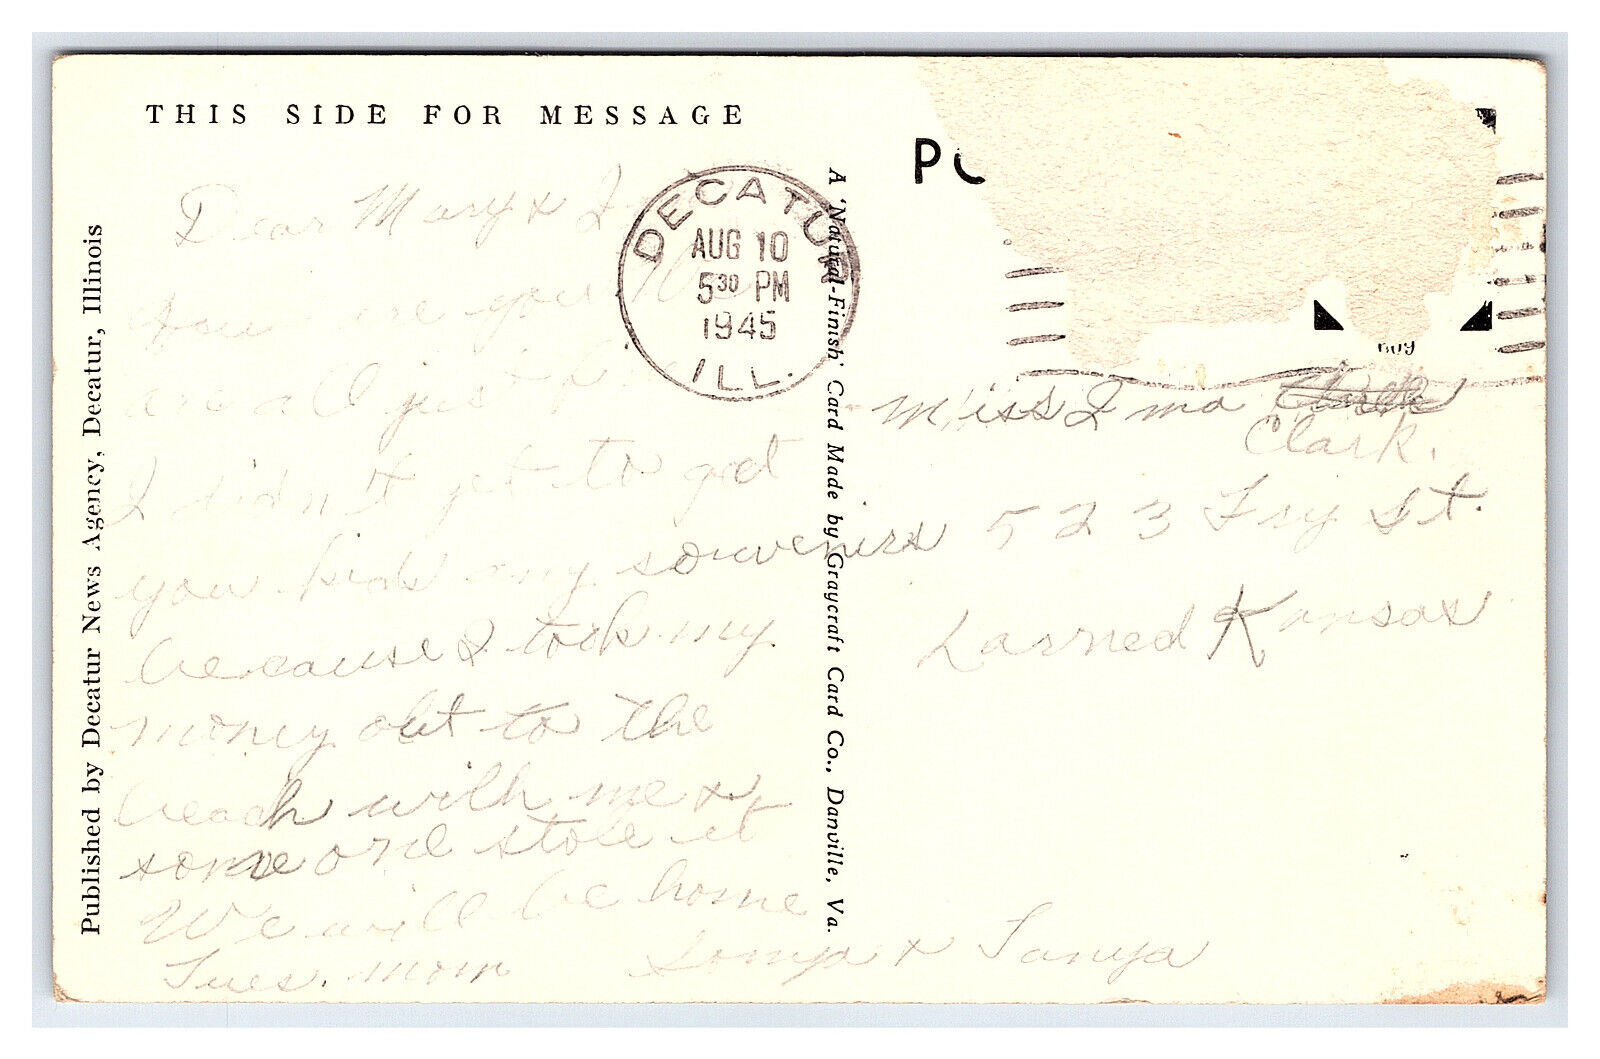 THIS SIDE FOR MESSAGE
Published by Decatur News Agency, Decatur, Illinois
Dear Mary &
How are you
are all just
I didn't get to get
you kids any souvenirs
because I took my
money out to the
beach with me &
some one stole it
We will be home
Tues. Mom Sonya & Tanya
A 'Natural-Finish' Card Made by Graycraft Card Co., Danville, Va.
DECATUR
AUG 10
5 30 PM
1945
ILL.
Miss Ima
Clark.
523 Fry St.
Larned Kansas